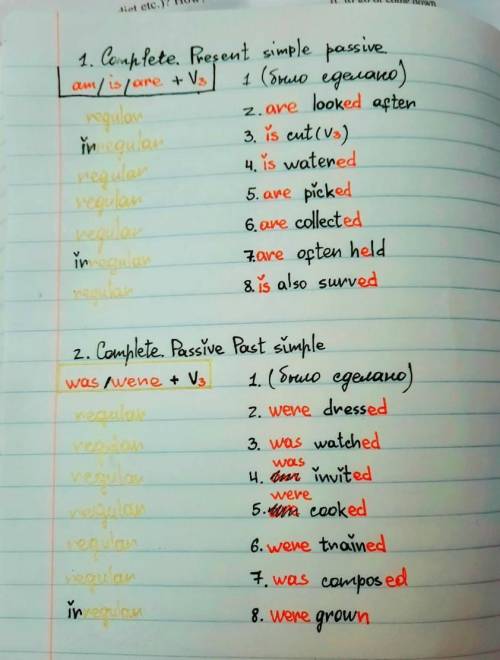 diet etc.)? How
1. Complete. Present simple passive
am/is/are + V3 1 (было сделано)
regular 2. are looked after
irregular 3. is cut (V3)
regular 4. is watered
regular 5. are picked
regular 6. are collected
irregular 7. are often held
regular 8. is also surved
2. Complete. Passive Past simple
was/were + V3 1. (было сделано)
regular 2. were dressed
regular 3. was watched
regular 4. was invited
regular 5. were cooked
regular 6. were trained
regular 7. was composed
irregular 8. were grown